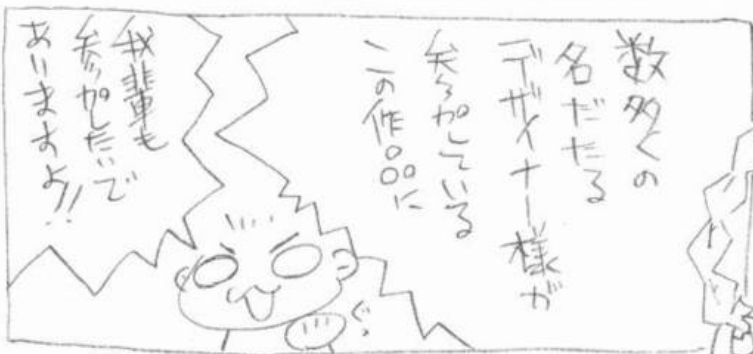 数多くの
名だたる
デザイナー様が
参加している
この作品に
我輩も
参加したいで
ありますよ!!
ぐっ